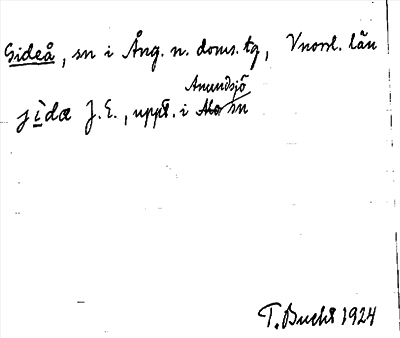 Gideå, sn i Ång. n. doms. tg, Vnorrl. län
jìdæ J. E., uppt. i Anundsjö sn
T. Bucht 1924